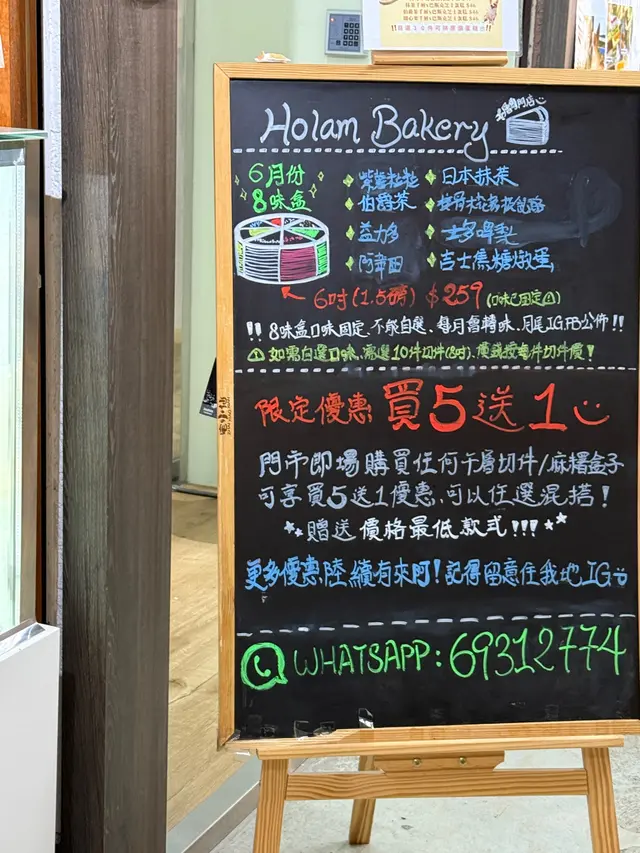 Holam Bakery
6月份
8味盒
日本抹茶
伯爵茶
益力多
士多啤梨
阿華田
吉士焦糖燉蛋
6吋(1.5磅) $259 (口味已固定⚠)
!! 8味盒口味固定、不能自選、每月會轉味、月尾IG,FB公佈!!
⚠如需自選口味、需選10件切件(8吋)、價錢按每件切件價!
限定優惠 買5送1
門市即場購買任何千層切件/麻糬盒子
可享買5送1優惠、可以任選混搭!
贈送價格最低款式!!!
更多優惠陸續有來阿!記得留意住我地IG
WHATSAPP:69312774